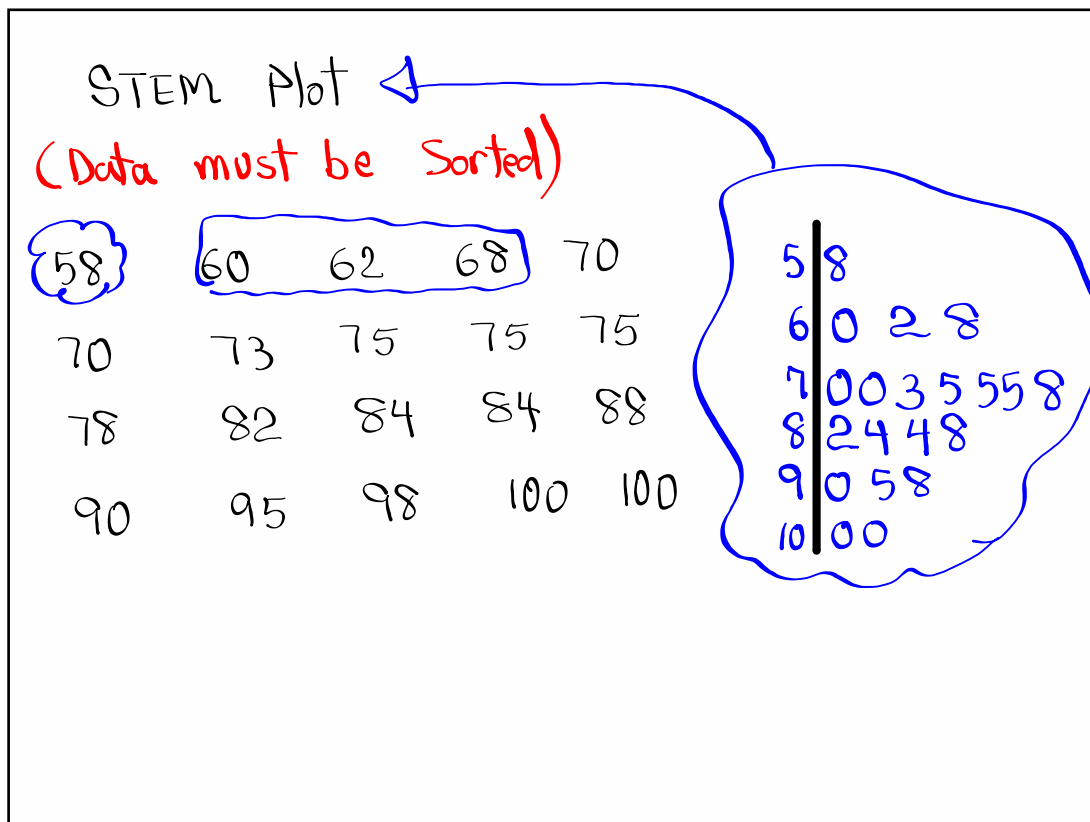 STEM Plot
(Data must be Sorted)
58 60 62 68 70
70 73 75 75 75
78 82 84 84 88
90 95 98 100 100
5 | 8
6 | 0 2 8
7 | 0 0 3 5 5 5 8
8 | 2 4 4 8
9 | 0 5 8
10 | 0 0